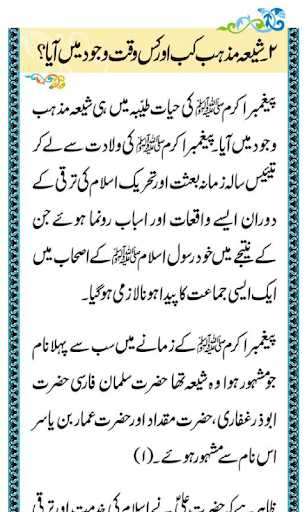 ۲۔ شیعہ مذہب کب اور کس وقت وجود میں آیا؟
پیغمبر اکرم ﷺ کی حیات طیبہ میں ہی شیعہ مذہب
وجود میں آیا۔ پیغمبر اکرم ﷺ کی ولادت سے لے کر
تیئیس سالہ زمانہ بعثت اور تحریک اسلام کی ترقی کے
دوران ایسے واقعات اور اسباب رونما ہوئے جن
کے نتیجے میں خود رسول اسلام ﷺ کے اصحاب میں
ایک ایسی جماعت کا پیدا ہونا لازمی ہوگیا۔
پیغمبر اکرم ﷺ کے زمانے میں سب سے پہلا نام
جو مشہور ہوا وہ شیعہ تھا حضرت سلمان فارسی حضرت
ابوذر غفاری، حضرت مقداد اور حضرت عمار بن یاسر
اس نام سے مشہور ہوئے۔ (۱)
ظاہر ہے کہ حضرت علیؑ نے اسلام کی خدمت اور ترقی